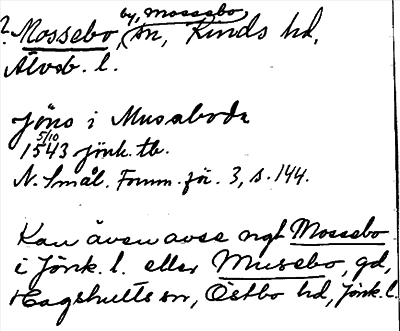 ? Mossebo, by, Mossebo sn, Kinds hd,
Älvsb. l.
Jöns i Musaboda
5/10
1543 jönk. tb.
N. Smål. Fornm. för. 3, s. 144.
Kan även avse ngt Mossebo
i Jönk. l. eller Musebo, gd,
Hagshults sn, Östbo hd, Jönk. l.